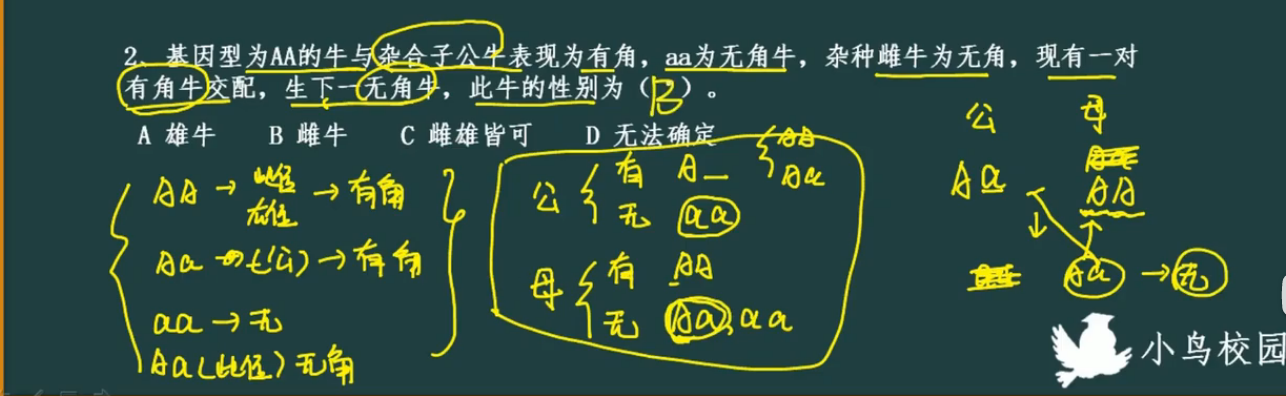 2、基因型为AA的牛与杂合子公牛表现为有角，aa为无角牛，杂种雌牛为无角，现有一对
有角牛交配，生下一无角牛，此牛的性别为（B）。
A 雄牛 B 雌牛 C 雌雄皆可 D 无法确定
AA → 雌性 雄性 → 有角
Aa → ♂(公) → 有角
aa → 无
Aa(雌性) 无角
公 { 有 A_ { AA Aa
无 aa
母 { 有 AA
无 Aa, aa
公 母
Aa AA
↓
Aa → 无
小鸟校园